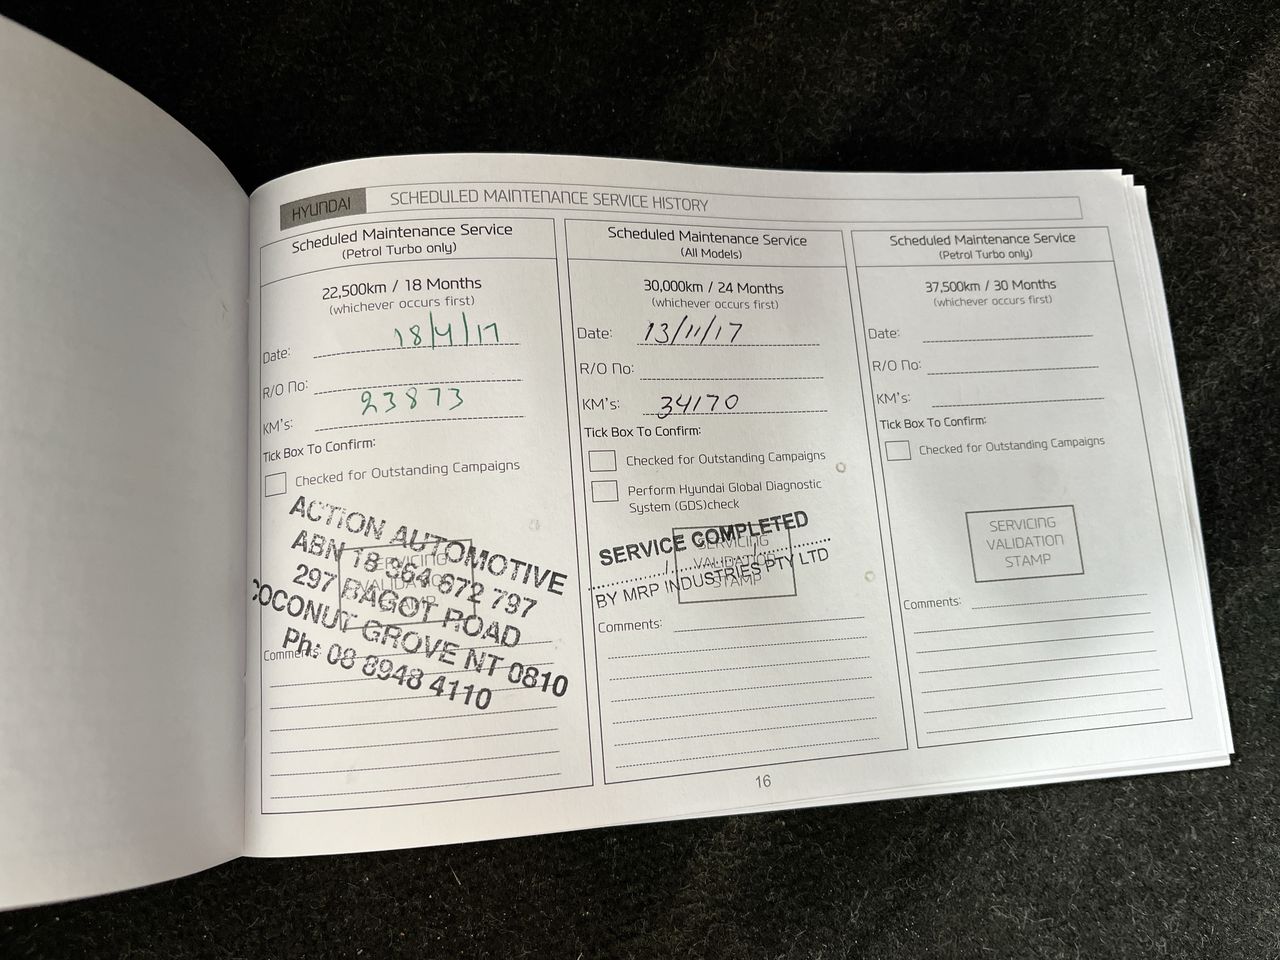 HYUNDAI SCHEDULED MAINTENANCE SERVICE HISTORY
Scheduled Maintenance Service
(Petrol Turbo only)
22,500km / 18 Months
(whichever occurs first)
Date: 18/4/17
R/O No:
KM's: 23873
Tick Box To Confirm:
Checked for Outstanding Campaigns
ACTION AUTOMOTIVE
ABN 18 364 672 797
297 BAGOT ROAD
COCONUT GROVE NT 0810
Ph: 08 8948 4110
SERVICING
VALIDATION
STAMP
Comments:
Scheduled Maintenance Service
(All Models)
30,000km / 24 Months
(whichever occurs first)
Date: 13/11/17
R/O No:
KM's: 34170
Tick Box To Confirm:
Checked for Outstanding Campaigns
Perform Hyundai Global Diagnostic
System (GDS)check
SERVICE COMPLETED
BY MRP INDUSTRIES PTY LTD
SERVICING
VALIDATION
STAMP
Comments:
Scheduled Maintenance Service
(Petrol Turbo only)
37,500km / 30 Months
(whichever occurs first)
Date:
R/O No:
KM's:
Tick Box To Confirm:
Checked for Outstanding Campaigns
SERVICING
VALIDATION
STAMP
Comments:
16